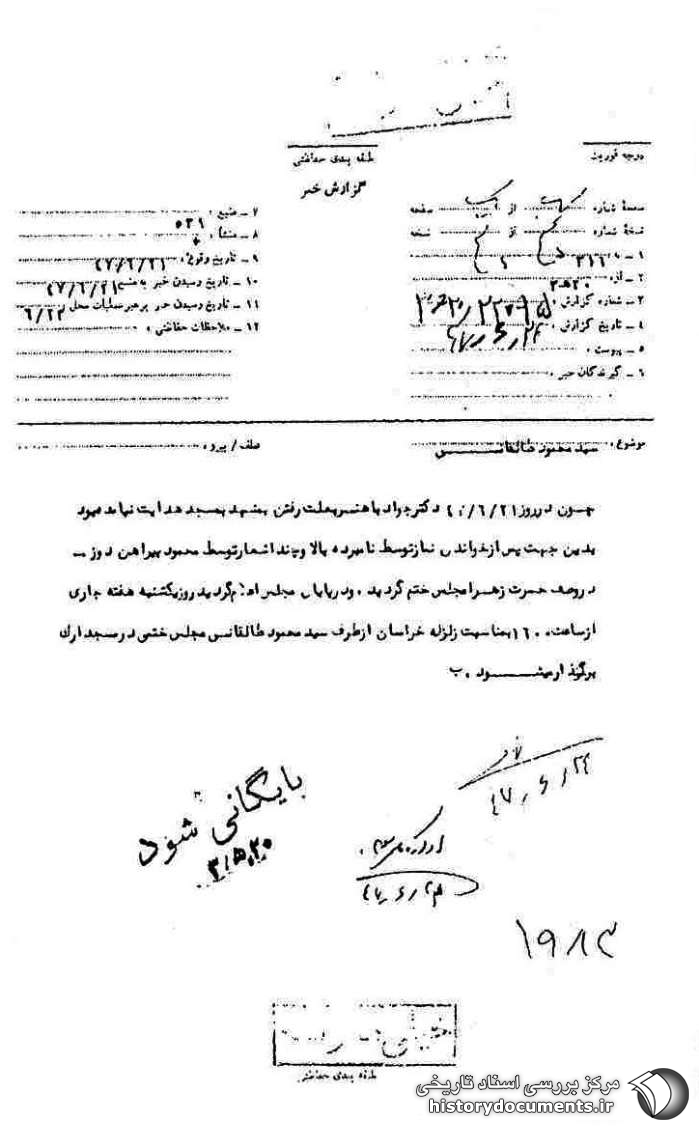 درجه فوریت
طبقه بندی حفاظتی
گزارش خبر
صفحهٔ شماره یک از یک صفحه
نسخهٔ شماره از نسخه
۱ ـ به ۳۱۶
۲ ـ از ۲۰ه۳
۳ ـ شماره گزارش
۴ ـ تاریخ گزارش ۴۷٫۶٫۲۴
۵ ـ پیوست
۶ ـ گیرندگان خبر
۷ ـ منبع
۸ ـ منشأ
۹ ـ تاریخ وقوع ۴۷/۶/۲۱
۱۰ ـ تاریخ رسیدن خبر به منبع ۴۷/۶/۲۱
۱۱ ـ تاریخ رسیدن خبر برهبر عملیات محل ۶/۲۲
۱۲ ـ ملاحظات حفاظتی
موضوع: سید محمود طالقانی
عطف / پیرو
چون در روز ۴۷/۶/۲۱ دکتر جواد باهنر بعلت رفتن بمشهد بمسجد هدایت نیامده بود
بدین جهت پس از خواندن نماز توسط نامبرده بالا و چند اشعار توسط محمود پیراهن دوز ـ
در وصف حضرت زهرا مجلس ختم گردید . و در پایان مجلس اعلام گردید روز یکشنبه هفته جاری
از ساعت ۱۶۰۰ بمناسبت زلزله خراسان از طرف سید محمود طالقانی مجلس ختمی در مسجد ارك
برگذار میشود . ب
۴۷٫۶٫۲۴
بایگانی شود
۳٫ه٫۲۰
۱۹۸۳
طبقه بندی حفاظتی
مرکز بررسی اسناد تاریخی
historydocuments.ir